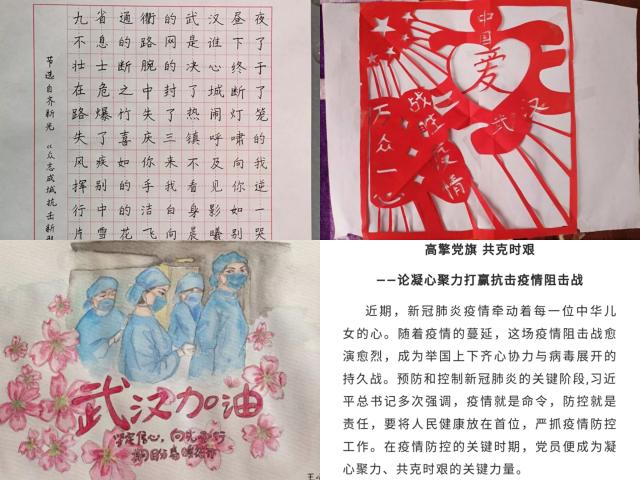 九省通衢的武汉昼夜
不息的路网是谁下了
壮士断腕的决心终于
在危之中封了城断了
路爆竹失了热闹灯笼
失了喜庆三镇呼啸的
风疾如你来不及向我
挥别的手我看见你逆
行中的洁白身影如一
片雪花飞向晨曦别哭
节选自齐新光《众志成城抗击新
中国
爱
武汉
战胜
疫情
万众一心
武汉加油
坚定信心,
高擎党旗 共克时艰
——论凝心聚力打赢抗击疫情阻击战
近期，新冠肺炎疫情牵动着每一位中华儿
女的心。随着疫情的蔓延，这场疫情阻击战愈
演愈烈，成为举国上下齐心协力与病毒展开的
持久战。预防和控制新冠肺炎的关键阶段,习近
平总书记多次强调，疫情就是命令，防控就是
责任，要将人民健康放在首位，严抓疫情防控
工作。在疫情防控的关键时期，党员便成为凝
心聚力、共克时艰的关键力量。